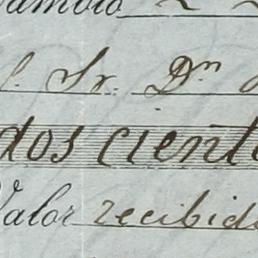 Cambio
Sr. Dn
dos ciento
Valor recibido